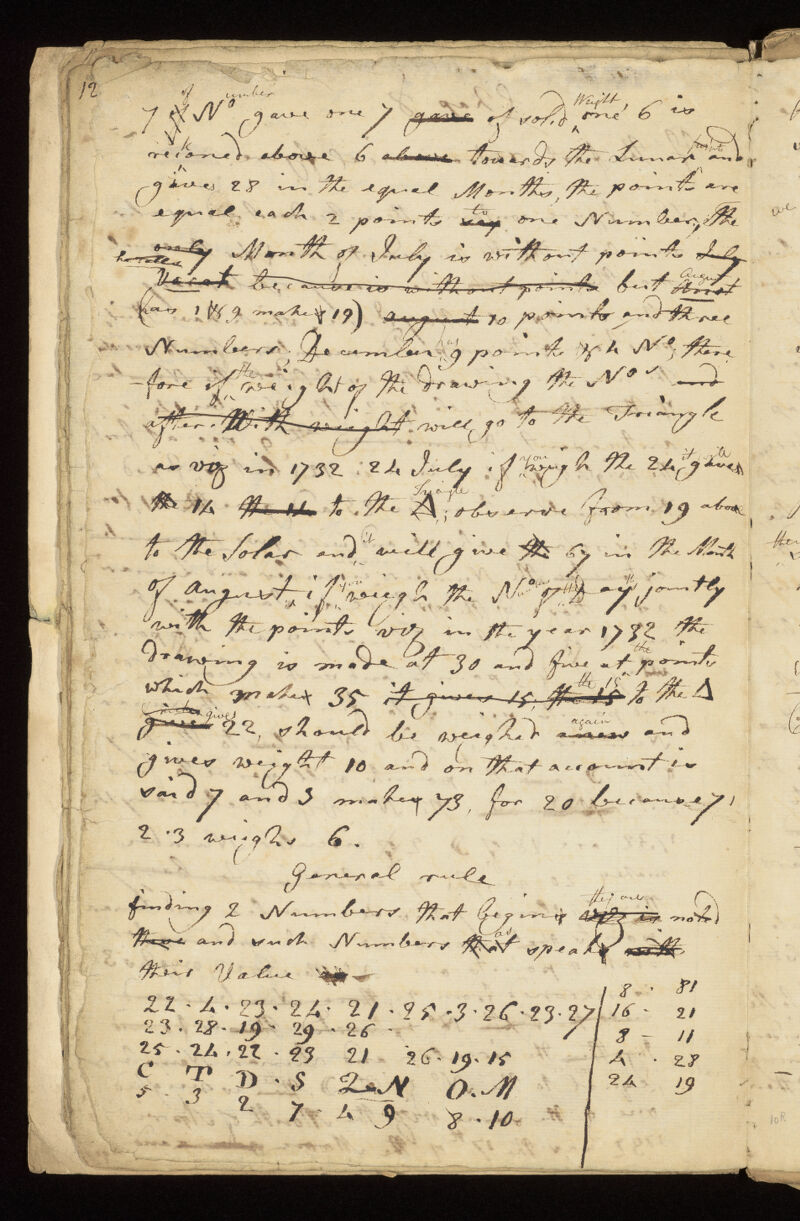 12
7 of No umber gave one 7 gave of solid Weight one' 6 is
reckoned above 6 above towards the Lunar points and
gives 28 in the equal Months, the points are
equal each 2 points to one Number, The
only Month of July is without points July
Vacat because is without points but August
(as 1 & 9 makes 19) august 10 points and three
Numbers; December has 9 points & 4 No; there
fore if the weight of the drawing the Nos and
after With weight will go to the Triangle
as viz in 1732. 24 July if you weigh the 24 it gives
the 14 the 14 to the Triangle Δ; observe from 19 above
to the Solar and it will give the 67 in the Month
of August, if you weigh the No of the Day jointly
with the points viz in the year 1732 the
drawing is made at 30 and five at the points
which makes 35 it gives 15, the 15 the 15 to the Δ
gives 22, should be weighed again anew and
gives weight 10 and on that account is
said 7 and 3 makes 73, for 20 because 7
2 · 3 weighs 6.
General rule
finding 2 Numbers that begins viz is noted
these and such Numbers that as speaks with
their Value
22 · 4 · 23 · 24 · 21 · 25 · 3 · 26 · 23 · 27
23 · 28 · 19 · 29 · 26
25 · 24 · 22 · 23 21 26 · 19 · 15
C T D · S Q N O · M
5 · 3 2 7 · 4 9 8 · 10
8 · 81
16 · 21
8 – 11
4 · 28
24 19